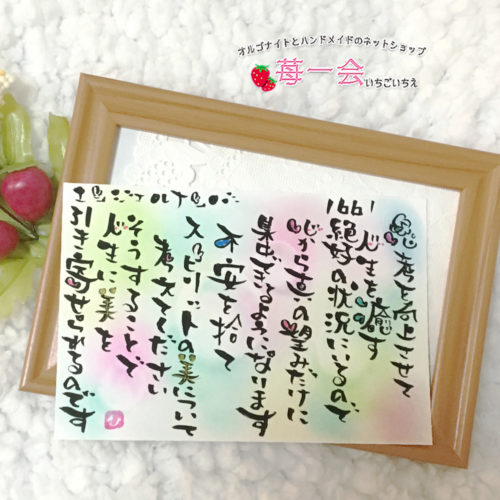 オルゴナイトとハンドメイドのネットショップ
苺一会
いちごいちえ
エンジェルナンバー
1661
思考を向上させて
人生を癒す
絶好の状況にいるので
心から真の望みだけに
集中できるようになります
不安を捨て
スピリットの美について
考えてください
そうすることで
人生に美を
引き寄せられるのです